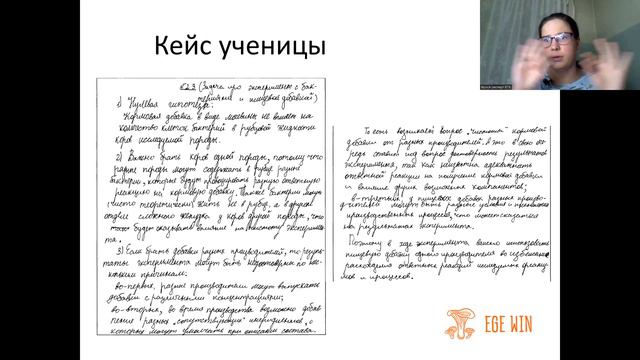 Кейс ученицы
№23 (Задача про эксперименты с бак-
териями и пищевой добавкой)
1) Нулевая гипотеза:
Кормовая добавка в виде не влияет на
количество клеток бактерий в рубцовой жидкости
коров исследуемой породы.
2) Важно брать коров одной породы, потому что
разные породы могут содержать в рубце разные
бактерии, которые будут разную ответную
реакцию на кормовую добавку. Также бактерии могут
чисто теоретически жить не в рубце, а в другом
отделе сложного желудка у коров другой породы, что
тоже будет оказывать влияние на эксперимен-
та.
3) Если брать добавки разных производителей, то резуль-
таты эксперимента могут быть недостоверны по нес-
кольким причинам:
во-первых, разные производители могут выпускать
добавки с различными концентрациями;
во-вторых, во время производства возможно добав-
ление разных "сопутствующих" ингредиентов, о
которых могут умолчать при описании состава.
То есть возникает вопрос "чистоты" кормовой
добавки от разных производителей. А это в свою оче-
редь ставит под вопрос достоверность результатов
эксперимента, так как
ответной реакции на кормовой добавки
и влияние других компонентов;
в-третьих, у пищевых добавок разных произво-
дителей могут быть разные условия и
производственного процесса, что может сказаться
на результатах эксперимента.
Поэтому в ходе эксперимента важно использовать
пищевую добавку одного производителя во избежание
расхождения ответных реакций
и процессов.
EGE WIN